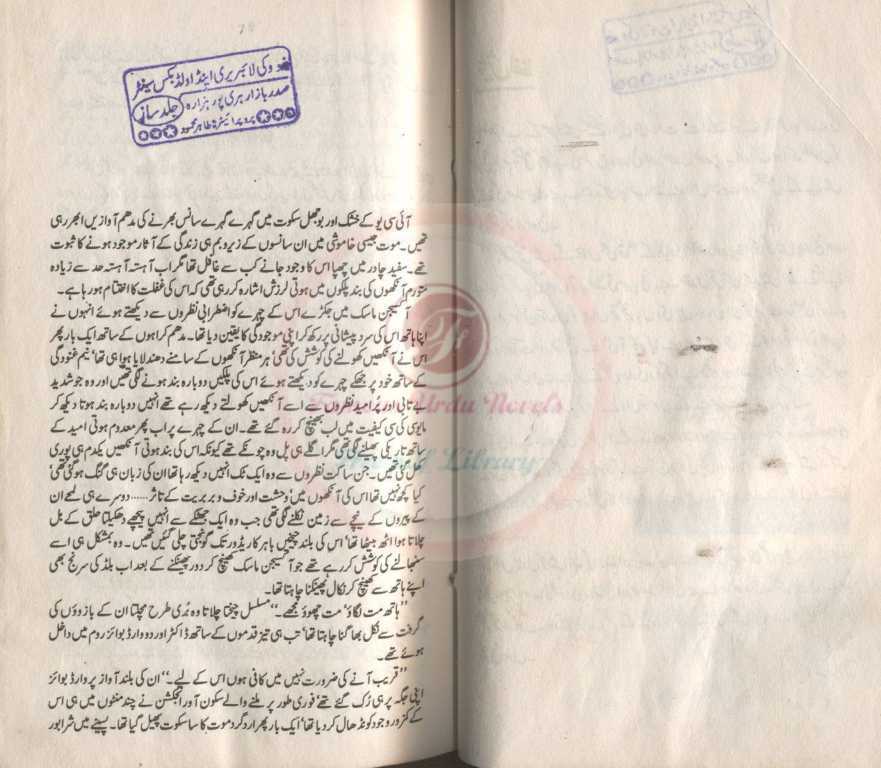 لائبریری اینڈ اولڈ بکس سینٹر
صدر بازار ہری پور ہزارہ جلد ساز
پروپرائیٹر: طاہر محمود
آئی سی یو کے خشک اور بوجھل سکوت میں گہرے گہرے سانس بھرنے کی مدھم آوازیں ابھر رہی
تھیں۔ موت جیسی خاموشی میں ان سانسوں کے زیروبم ہی زندگی کے آثار موجود ہونے کا ثبوت
تھے۔ سفید چادر میں چھپا اس کا وجود جانے کب سے غافل تھا مگر اب آہستہ آہستہ حد سے زیادہ
متورم آنکھوں کی بند پلکوں میں ہوتی لرزش اشارہ کر رہی تھی کہ اس کی غفلت کا اختتام ہو رہا ہے۔
آکسیجن ماسک میں جکڑے اس کے چہرے کو اضطرابی نظروں سے دیکھتے ہوئے انہوں نے
اپنا ہاتھ اس کی سرد پیشانی پر رکھ کر اپنی موجودگی کا یقین دیا تھا۔ مدھم کراہوں کے ساتھ ایک بار پھر
اس نے آنکھیں کھولنے کی کوشش کی تھی‘ ہر منظر آنکھوں کے سامنے دھندلایا ہوا ہی تھا‘ نیم غنودگی
کے ساتھ خود پر جھکے چہرے کو دیکھتے ہوئے اس کی پلکیں دوبارہ بند ہونے لگی تھیں اور وہ جو شدید
بے تابی اور پُرامید نظروں سے اسے آنکھیں کھولتے دیکھ رہے تھے انہیں دوبارہ بند ہوتا دیکھ کر
مایوسی کی سی کیفیت میں لب بھینچ کر رہ گئے تھے۔ ان کے چہرے پر اب پھر معدوم ہوتی امید کے
ساتھ تاریکی پھیلنے لگی تھی مگر اگلے ہی پل وہ چونکے تھے کیونکہ اس کی بند ہوتی آنکھیں یکدم ہی پوری
کھل گئی تھیں۔ جن ساکت نظروں سے وہ ایک ٹک انہیں دیکھ رہا تھا ان کی زبان ہی گنگ ہو گئی تھی‘
کیا کچھ نہیں تھا اس کی آنکھوں میں‘ وحشت اور خوف و بربریت کے تاثر...... دوسرے ہی لمحے ان
کے پیروں کے نیچے سے زمین نکلنے لگی تھی جب وہ ایک جھٹکے سے انہیں پیچھے دھکیلتا حلق کے بل
چلاتا ہوا اٹھ بیٹھا تھا‘ اس کی بلند چیخیں باہر کاریڈور تک گونجتی چلی گئیں تھیں۔ وہ بمشکل ہی اسے
سنبھالنے کی کوشش کر رہے تھے جو آکسیجن ماسک کھینچ کر دور پھینکنے کے بعد اب بلڈ کی سرنج بھی
اپنے ہاتھ سے کھینچ کر نکال پھینکنا چاہتا تھا۔
”ہاتھ مت لگاؤ‘ مت چھوؤ مجھے۔“ مسلسل چیختا چلاتا وہ بُری طرح مچلتا ان کے بازوؤں کی
گرفت سے نکل بھاگنا چاہتا تھا‘ تب ہی تیز قدموں کے ساتھ ڈاکٹر اور دو وارڈ بوائز روم میں داخل
ہوئے تھے۔
”قریب آنے کی ضرورت نہیں میں کافی ہوں اس کے لیے۔“ ان کی بلند آواز پر وارڈ بوائز
اپنی جگہ پر ہی رُک گئے تھے‘ فوری طور پر ملنے والے سکون آور انجکشن نے چند منٹوں میں ہی اس
کے کمزور وجود کو نڈھال کر دیا تھا‘ ایک بار پھر اردگرد موت کا سا سکوت پھیل گیا تھا۔ پسینے میں شرابور
Urdu Novels
Library